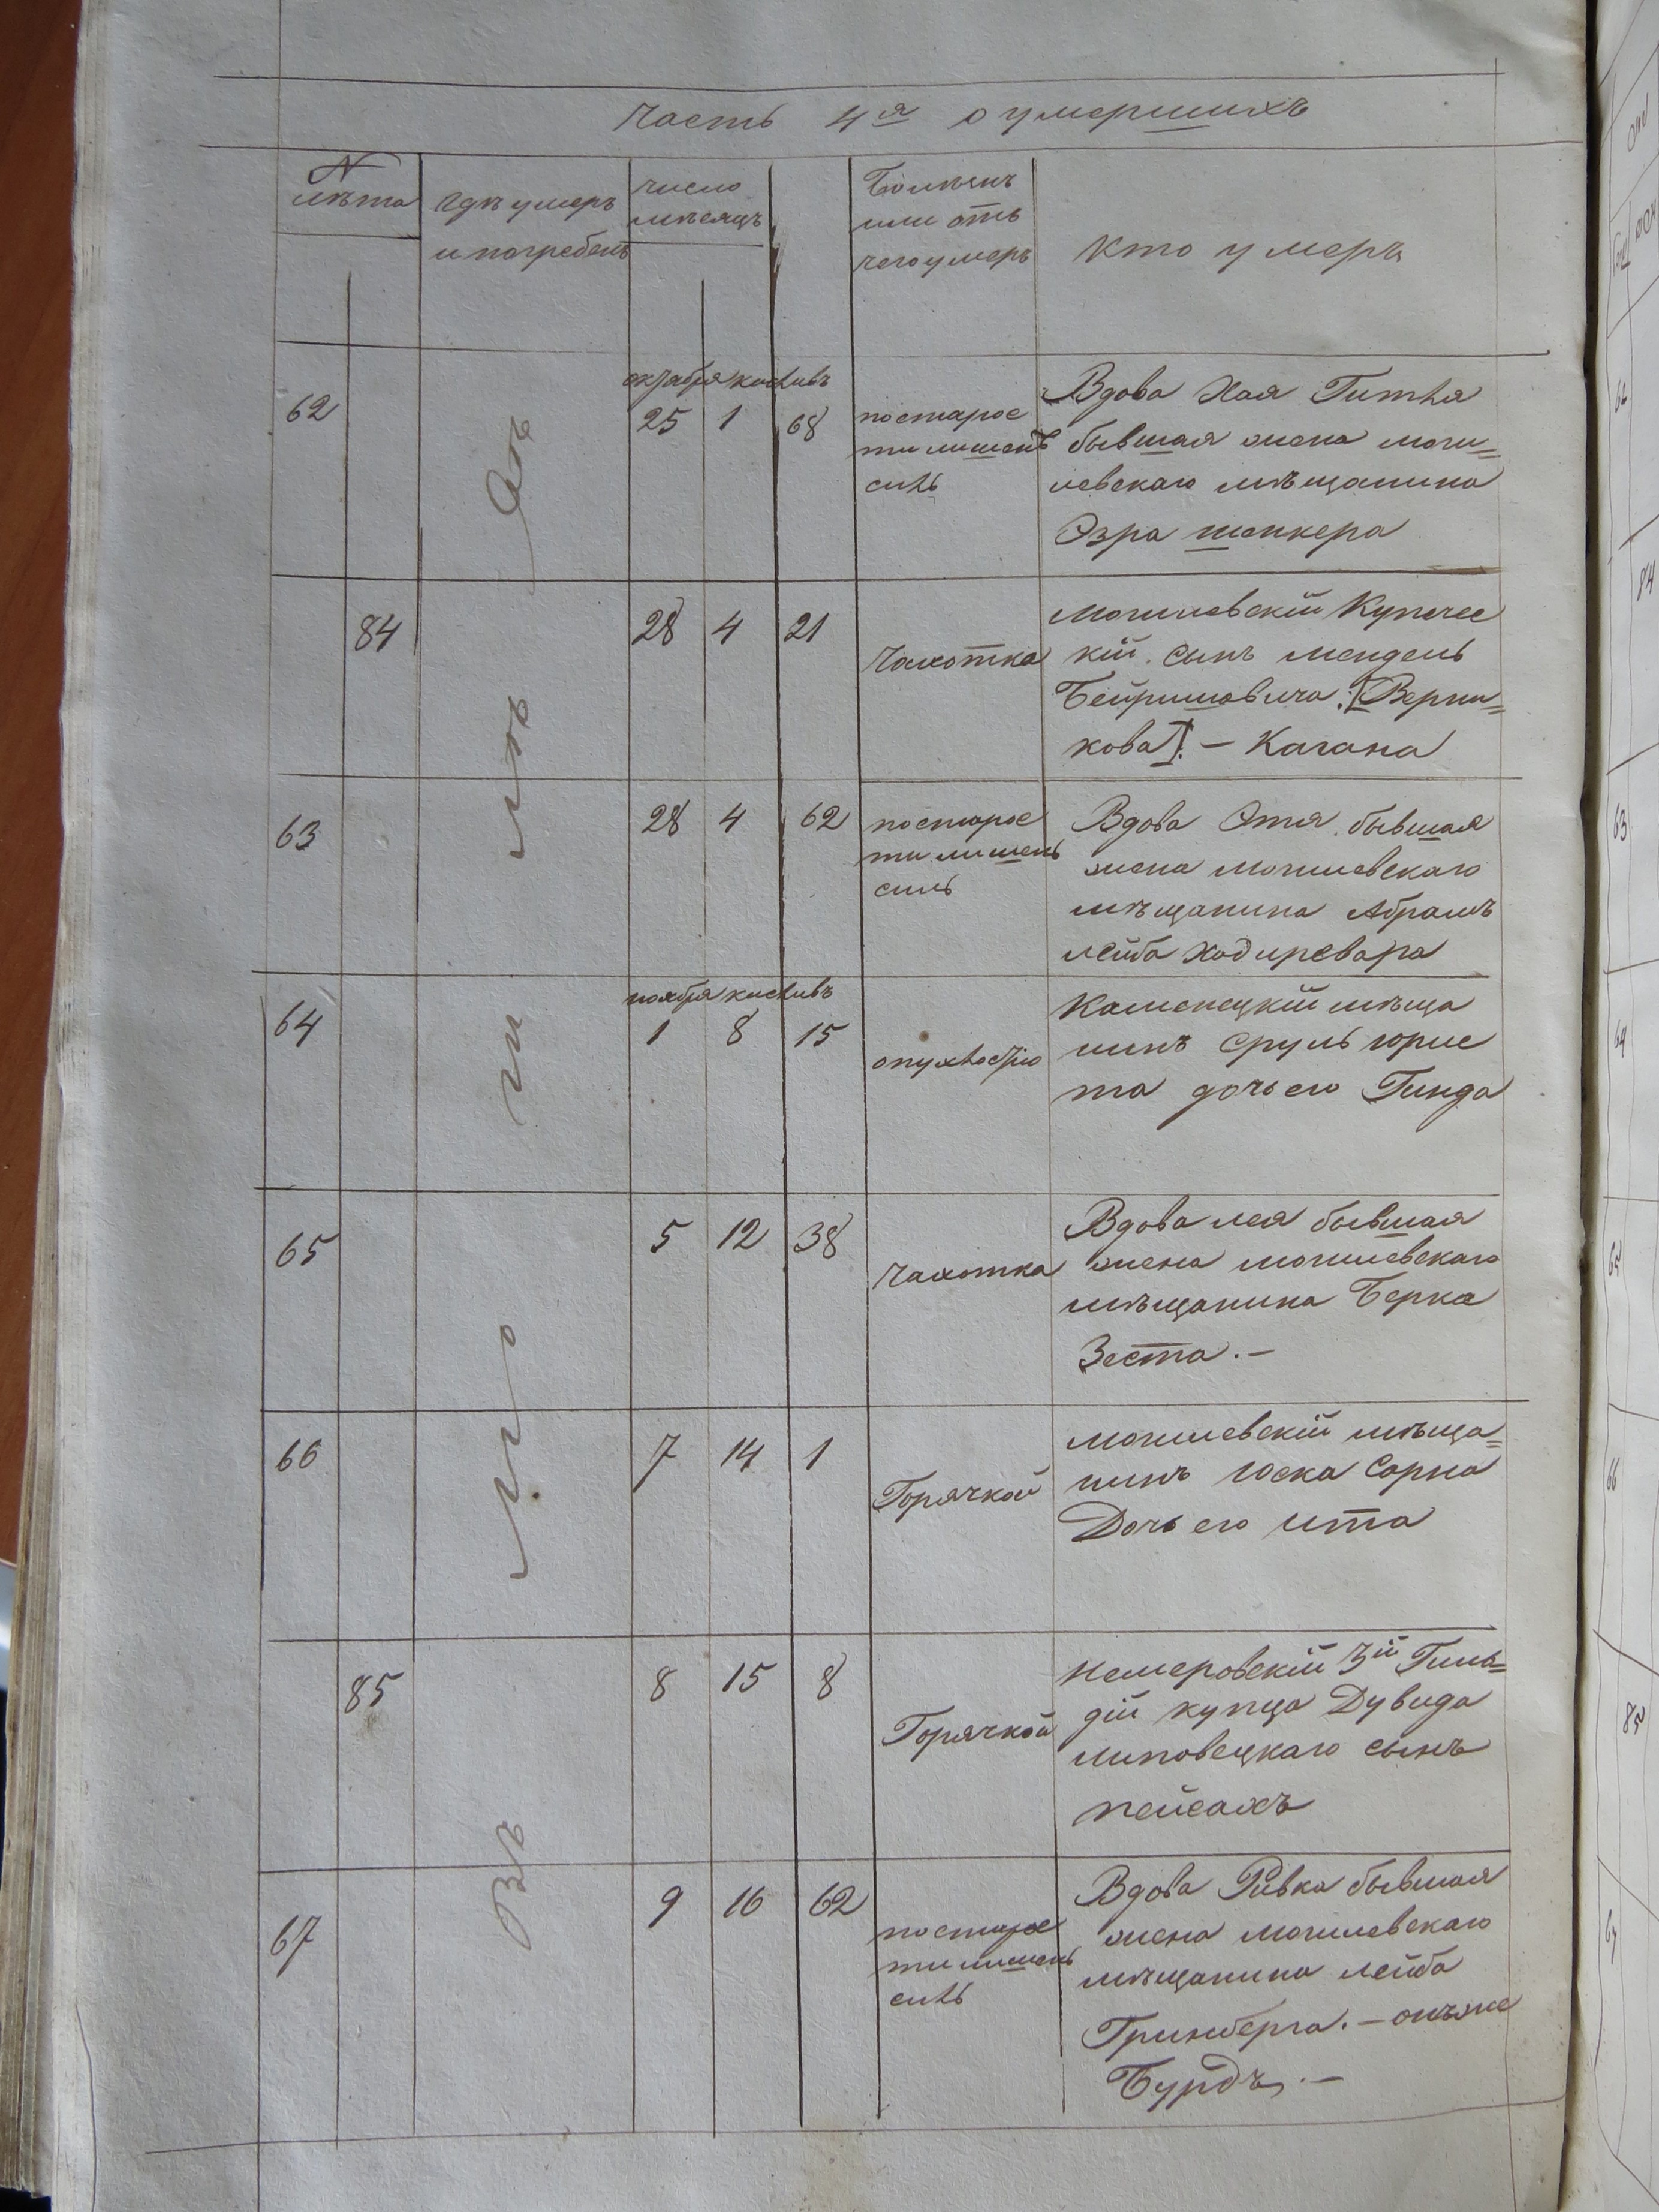 Часть 4я о умершихъ
N
лѣта
гдѣ умеръ
и погребенъ
число
мѣсяцъ
Болѣзнь
или отъ
чего умеръ
кто умеръ
октября кисливъ
62 25 1 68
по старос
ти лишенъ
силъ
Вдова Хая Гитля
бывшая жена моги=
левскаго мѣщанина
Озра шенкера
84 28 4 21
Чахотка
могилевскій Купечес
кій сынъ мендель
Бейришовича :/Верни=
кова/: — Кагана
63 28 4 62
по старос
ти лишенъ
силъ
Вдова Этя бывшая
жена могилевскаго
мѣщанина Абрамъ
лейба
ноября кисливъ
64 1 8 15
опухлостію
Каменецкій мѣща
нинъ Сруль юрис
та дочь его Гинда
65 5 12 38
Чахотка
Вдова лея бывшая
жена могилевскаго
мѣщанина Берка
Зеста. —
66 7 14 1
Горячкой
могилевскій мѣща=
нинъ юска Сарна
Дочь его ита
85 8 15 8
Горячкой
немеровскій 3й Гиль=
дій купца Дувида
липовецкаго сынъ
пейсахъ
67 9 16 62
по старос
ти лишенъ
силъ
Вдова Ривка бывшая
жена могилевскаго
мѣщанина лейба
Гринберга. — онъ же
Бурдъ. —
62
84
63
64
65
66
85
67